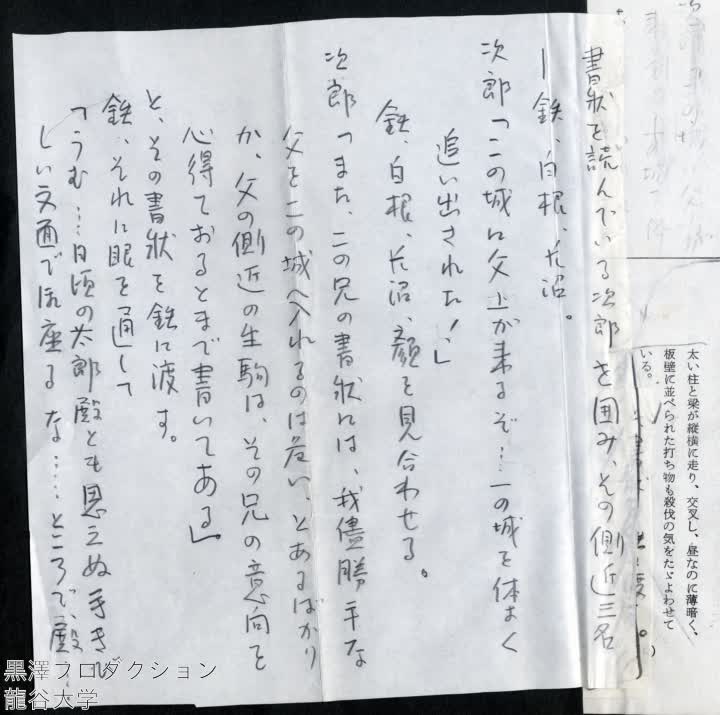 太い柱と梁が縦横に走り、交叉し、昼なのに薄暗く、
板壁に並べられた打ち物も殺伐の気をたゞよわせて
いる。
書状を読んでいる次郎を囲み、その側近三名
―鉄、白根、長沼。
次郎「この城に父上が来るぞ…一の城を体よく
追い出された！」
鉄、白根、長沼、顔を見合わせる。
次郎「また、この兄の書状には、我儘勝手な
父をこの城へ入れるのは危い、とあるばかり
か、父の側近の生駒は、その兄の意向を
心得ておるとまで書いてある」
と、その書状を鉄に渡す。
鉄、それに眼を通して
「うむ…日頃の太郎殿とも思えぬ手きび
しい文面で御座るな……ところで、殿
黒澤プロダクション
龍谷大学